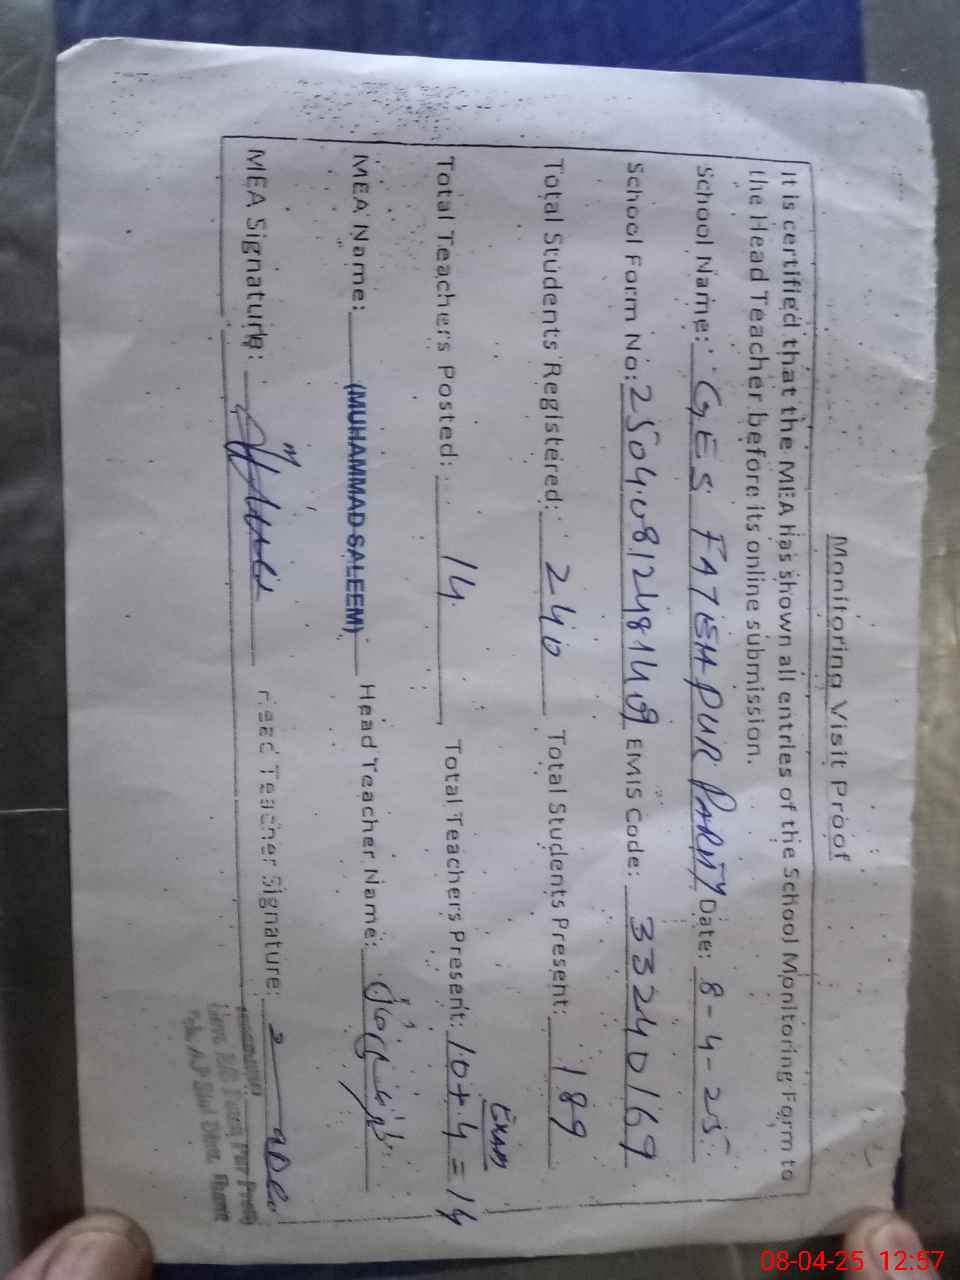 Monitoring Visit Proof
It is certified that the MEA has shown all entries of the School Monitoring Form to
the Head Teacher before its online submission.
School Name: GES FATEH PUR PARTY Date: 8-4-25
School Form No: EMIS Code: 33240169
Total Students Registered: 240 Total Students Present: 189
Exam
Total Teachers Posted: 14 Total Teachers Present: 10+4=14
MEA Name: (MUHAMMAD SALEEM) Head Teacher Name:
MEA Signature: Head Teacher Signature:
08-04-25 12:57